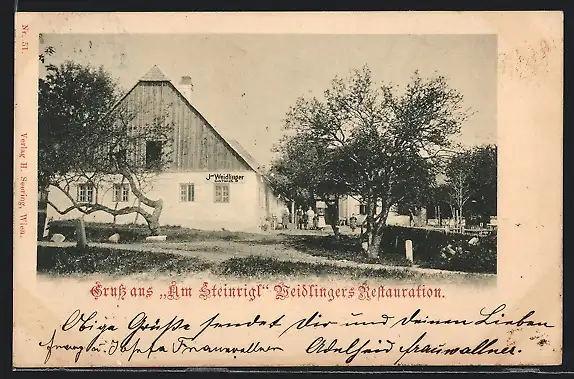 Nr. 51.
Verlag H. Seering, Wien.
Jos Weidlinger
Gruß aus „Am Steinrigl“ Weidlingers Restauration.
Obige Grüße sendet dir und deinen Lieben
Franz u. Josefa Frauwallner Adelheid Frauwallner.